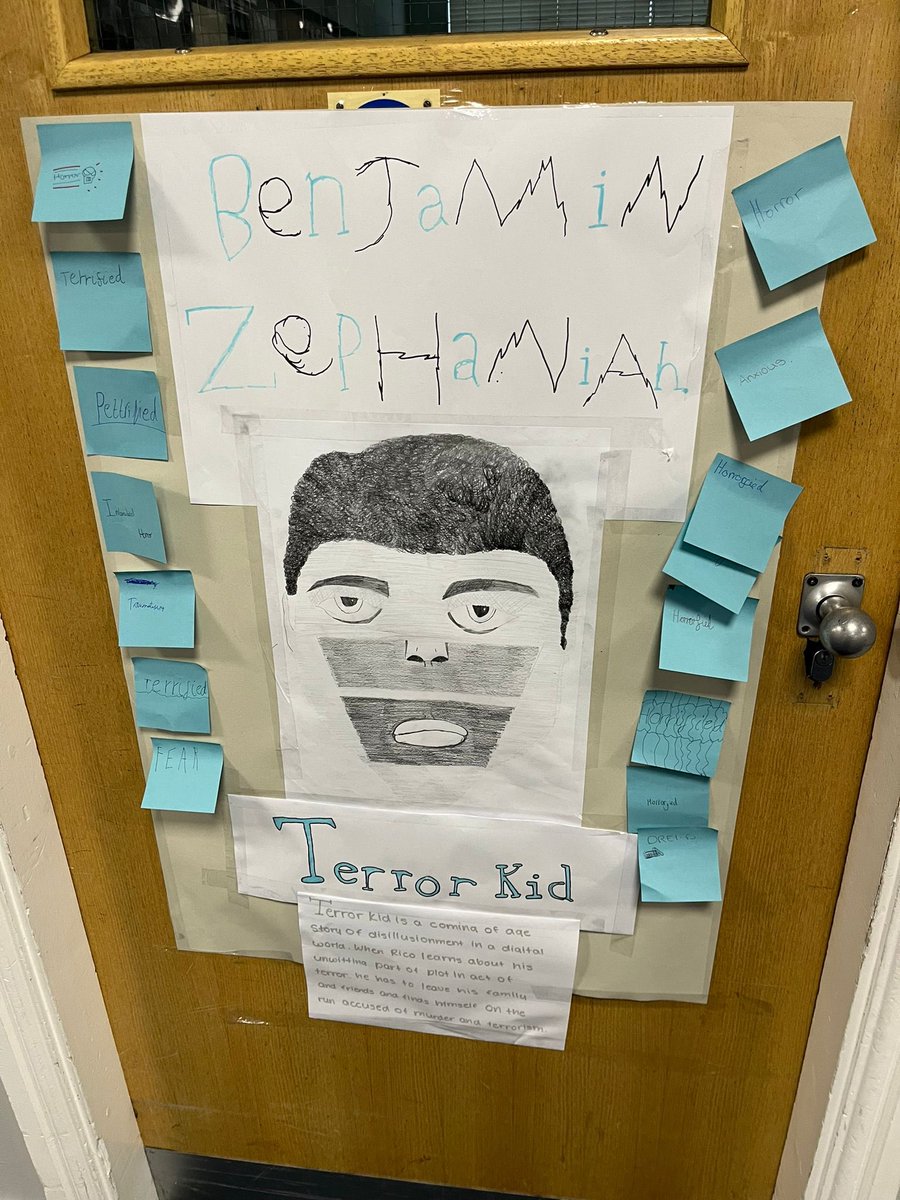 BenJaMiN
ZepHaNiAh.
Horror
Terrified
Pettrified
Horror
Terrified
FEAR
Horror
Anxious.
Horrofied
Horrofied
Horrofied
Terror Kid
Terror Kid is a coming of age
story of disillusionment in a digital
world. When Rico learns about his
unwitting part of plot in act of
terror he has to leave his family
and friends and finds himself on the
run accused of murder and terrorism.